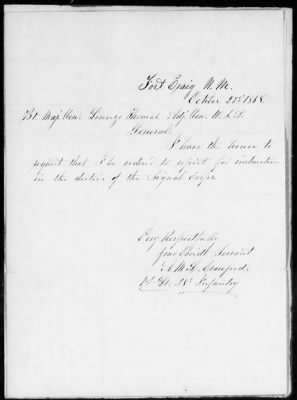 Fort Craig N. M.
October 27th 1868.
Bt. Maj. Gen. Lorenzo Thomas, Adj. Gen. U.S.A.
General,
I have the honor to
request that I be ordered to report for instruction
in the duties of the Signal Corps.
Very Respectfully
Your Obedt Servant
Crawford.
1st Lt. 38t Infantry